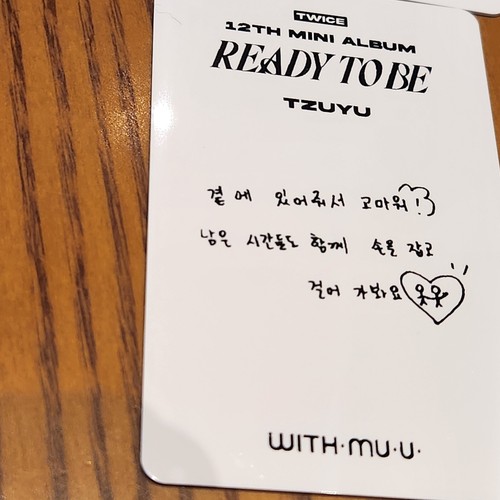 TWICE
12TH MINI ALBUM
READY TO BE
TZUYU
곁에 있어줘서 고마워!
남은 시간들도 함께 손을 잡고
걸어 가봐요
WITH·MU·U·